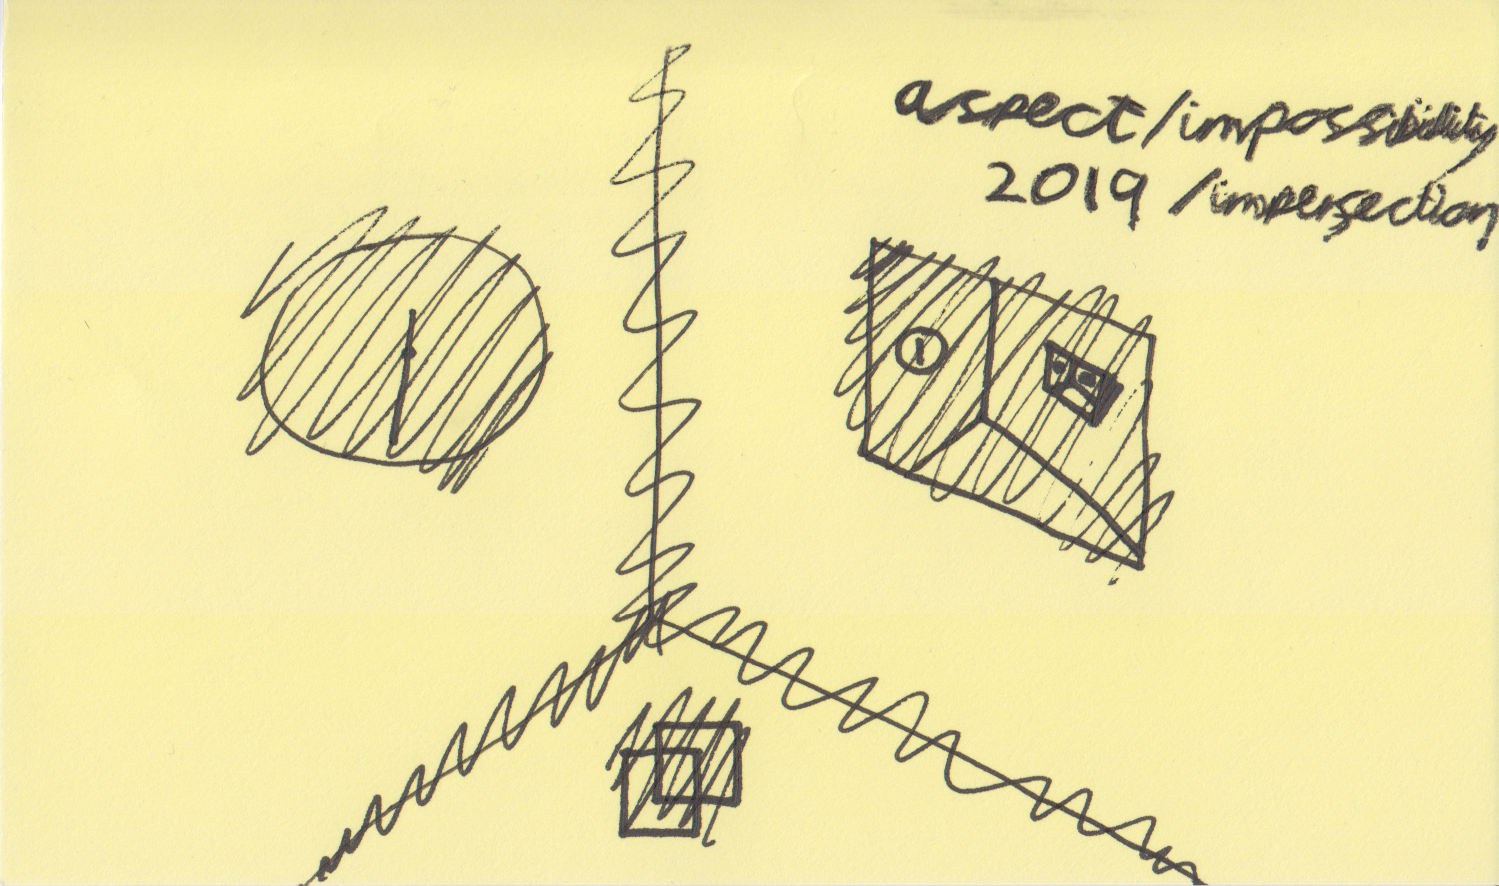 aspect/impossibility
2019 /imperfection